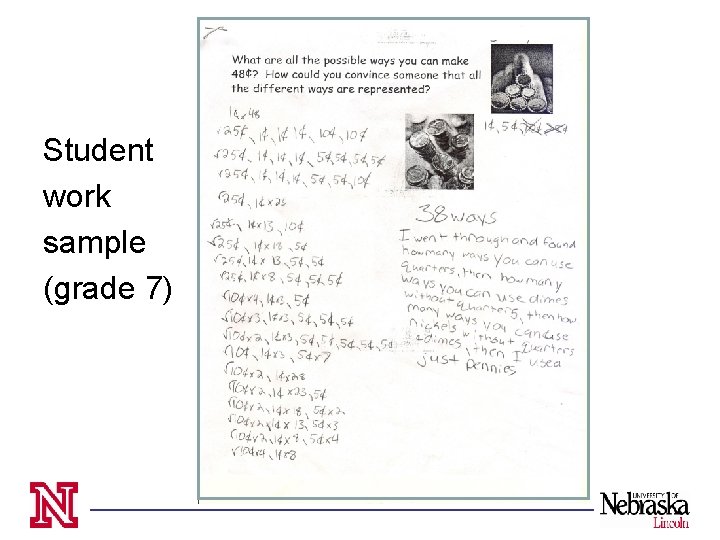 Student
work
sample
(grade 7)
What are all the possible ways you can make
48¢? How could you convince someone that all
the different ways are represented?
1¢, 5¢,
1¢x48
√25¢, 1¢, 1¢, 1¢, 10¢, 10¢
√25¢, 1¢, 1¢, 1¢, 5¢, 5¢, 5¢, 5¢
√25¢, 1¢, 1¢, 1¢, 5¢, 5¢, 10¢
√25¢, 1¢x23
√25¢, 1¢x13, 10¢
√25¢, 1¢x18, 5¢
√25¢, 1¢x13, 5¢, 5¢
√25¢, 1¢x8, 5¢, 5¢, 5¢
√10¢x4, 1¢x3, 5¢
√10¢x3, 1¢x3, 5¢, 5¢, 5¢
√10¢x2, 1¢x3, 5¢, 5¢, 5¢, 5¢, 5¢
√10¢, 1¢x3, 5¢x7
√10¢x2, 1¢x28
√10¢x2, 1¢x23, 5¢
√10¢x2, 1¢x18, 5¢x2
√10¢x2, 1¢x13, 5¢x3
√10¢x2, 1¢x8, 5¢x4
√10¢x4, 1¢x8
38 ways
I went through and found
how many ways you can use
quarters, then how many
ways you can use dimes
without quarters, then how
many ways you can use
nickels without quarters
+ dimes, then I used
just pennies
N
UNIVERSITY OF
Nebraska
Lincoln